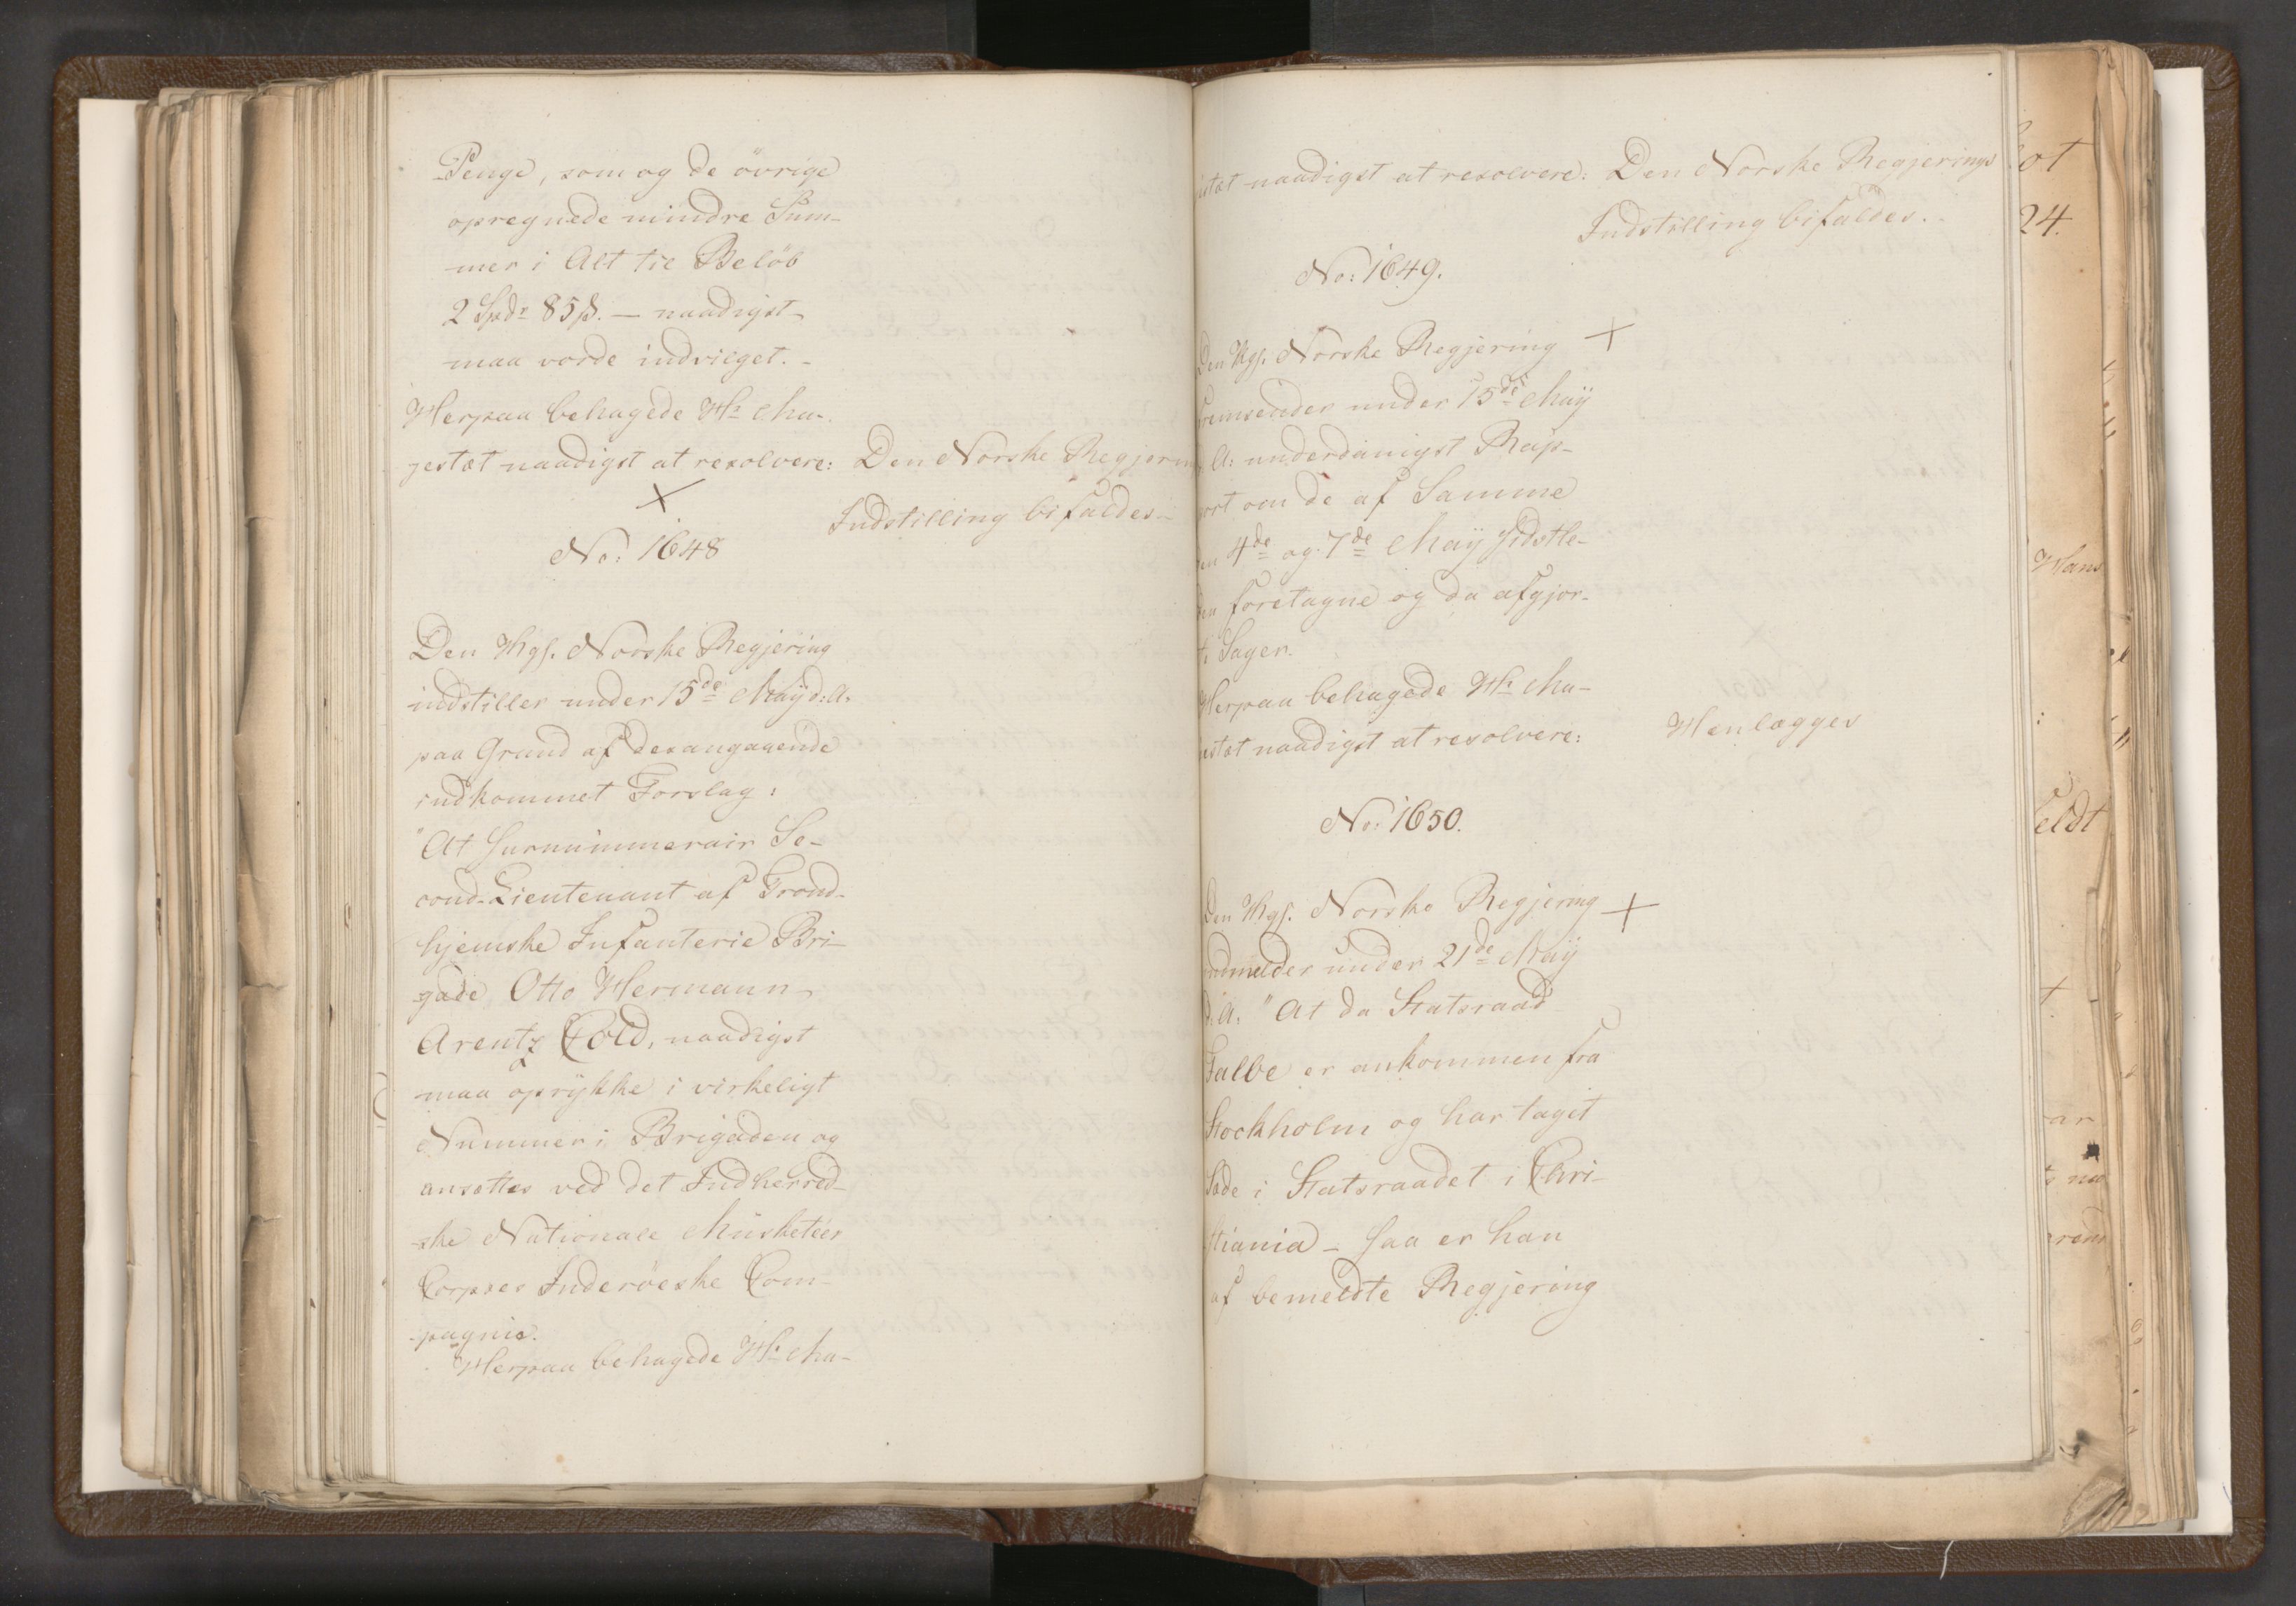 Penge, som og de övrige
opregnede mindre Sum-
mer i Alt til Beløb
2 Spdr 85 ß. — naadigst
maa vorde indvilget. -
Herpaa behagede Hs Ma-
jestæt naadigst at resolvere: Den Norske Regjering
Indstilling bifaldes -
No: 1648
Den Kgl. Norske Regjering
indstiller under 15de Maÿ d: A.
paa Grund af desangaaende
indkommet Forslag:
"At Surnummerair Se-
cond-Lieutenant af Trond-
hjemske Infanterie Bri-
gade, Otto Hermann
Arentz Cold, naadigst
maa oprÿkke i virkeligt
Nummer i Brigaden og
ansættes ved det Indherred-
ske Nationale Musketeer
Corpses Inderöeske Com-
pagnie.
Herpaa behagede Hs Ma-
jestæt naadigst at resolvere: Den Norske Regjerings
Indstilling bifaldes.
No: 1649.
Den Kgl. Norske Regjering
fremsender under 15de Maÿ
A: underdanigst Rap-
port om de af Samme
den 4de og 7de Maÿ sidstle-
den foretagne og da afgjor-
te Sager.
Herpaa behagede Hs Ma-
jestæt naadigst at resolvere: Henlægges
No: 1650.
Den Kgl. Norske Regjering
indmelder under 21de Maÿ
d: A. "At da Statsraad
Falbe er ankommen fra
Stockholm og har taget
Sæde i Statsraadet i Chri-
stiania - saa er han
af bemeldte Regjering
ot
24.
Hans
eldt
ar